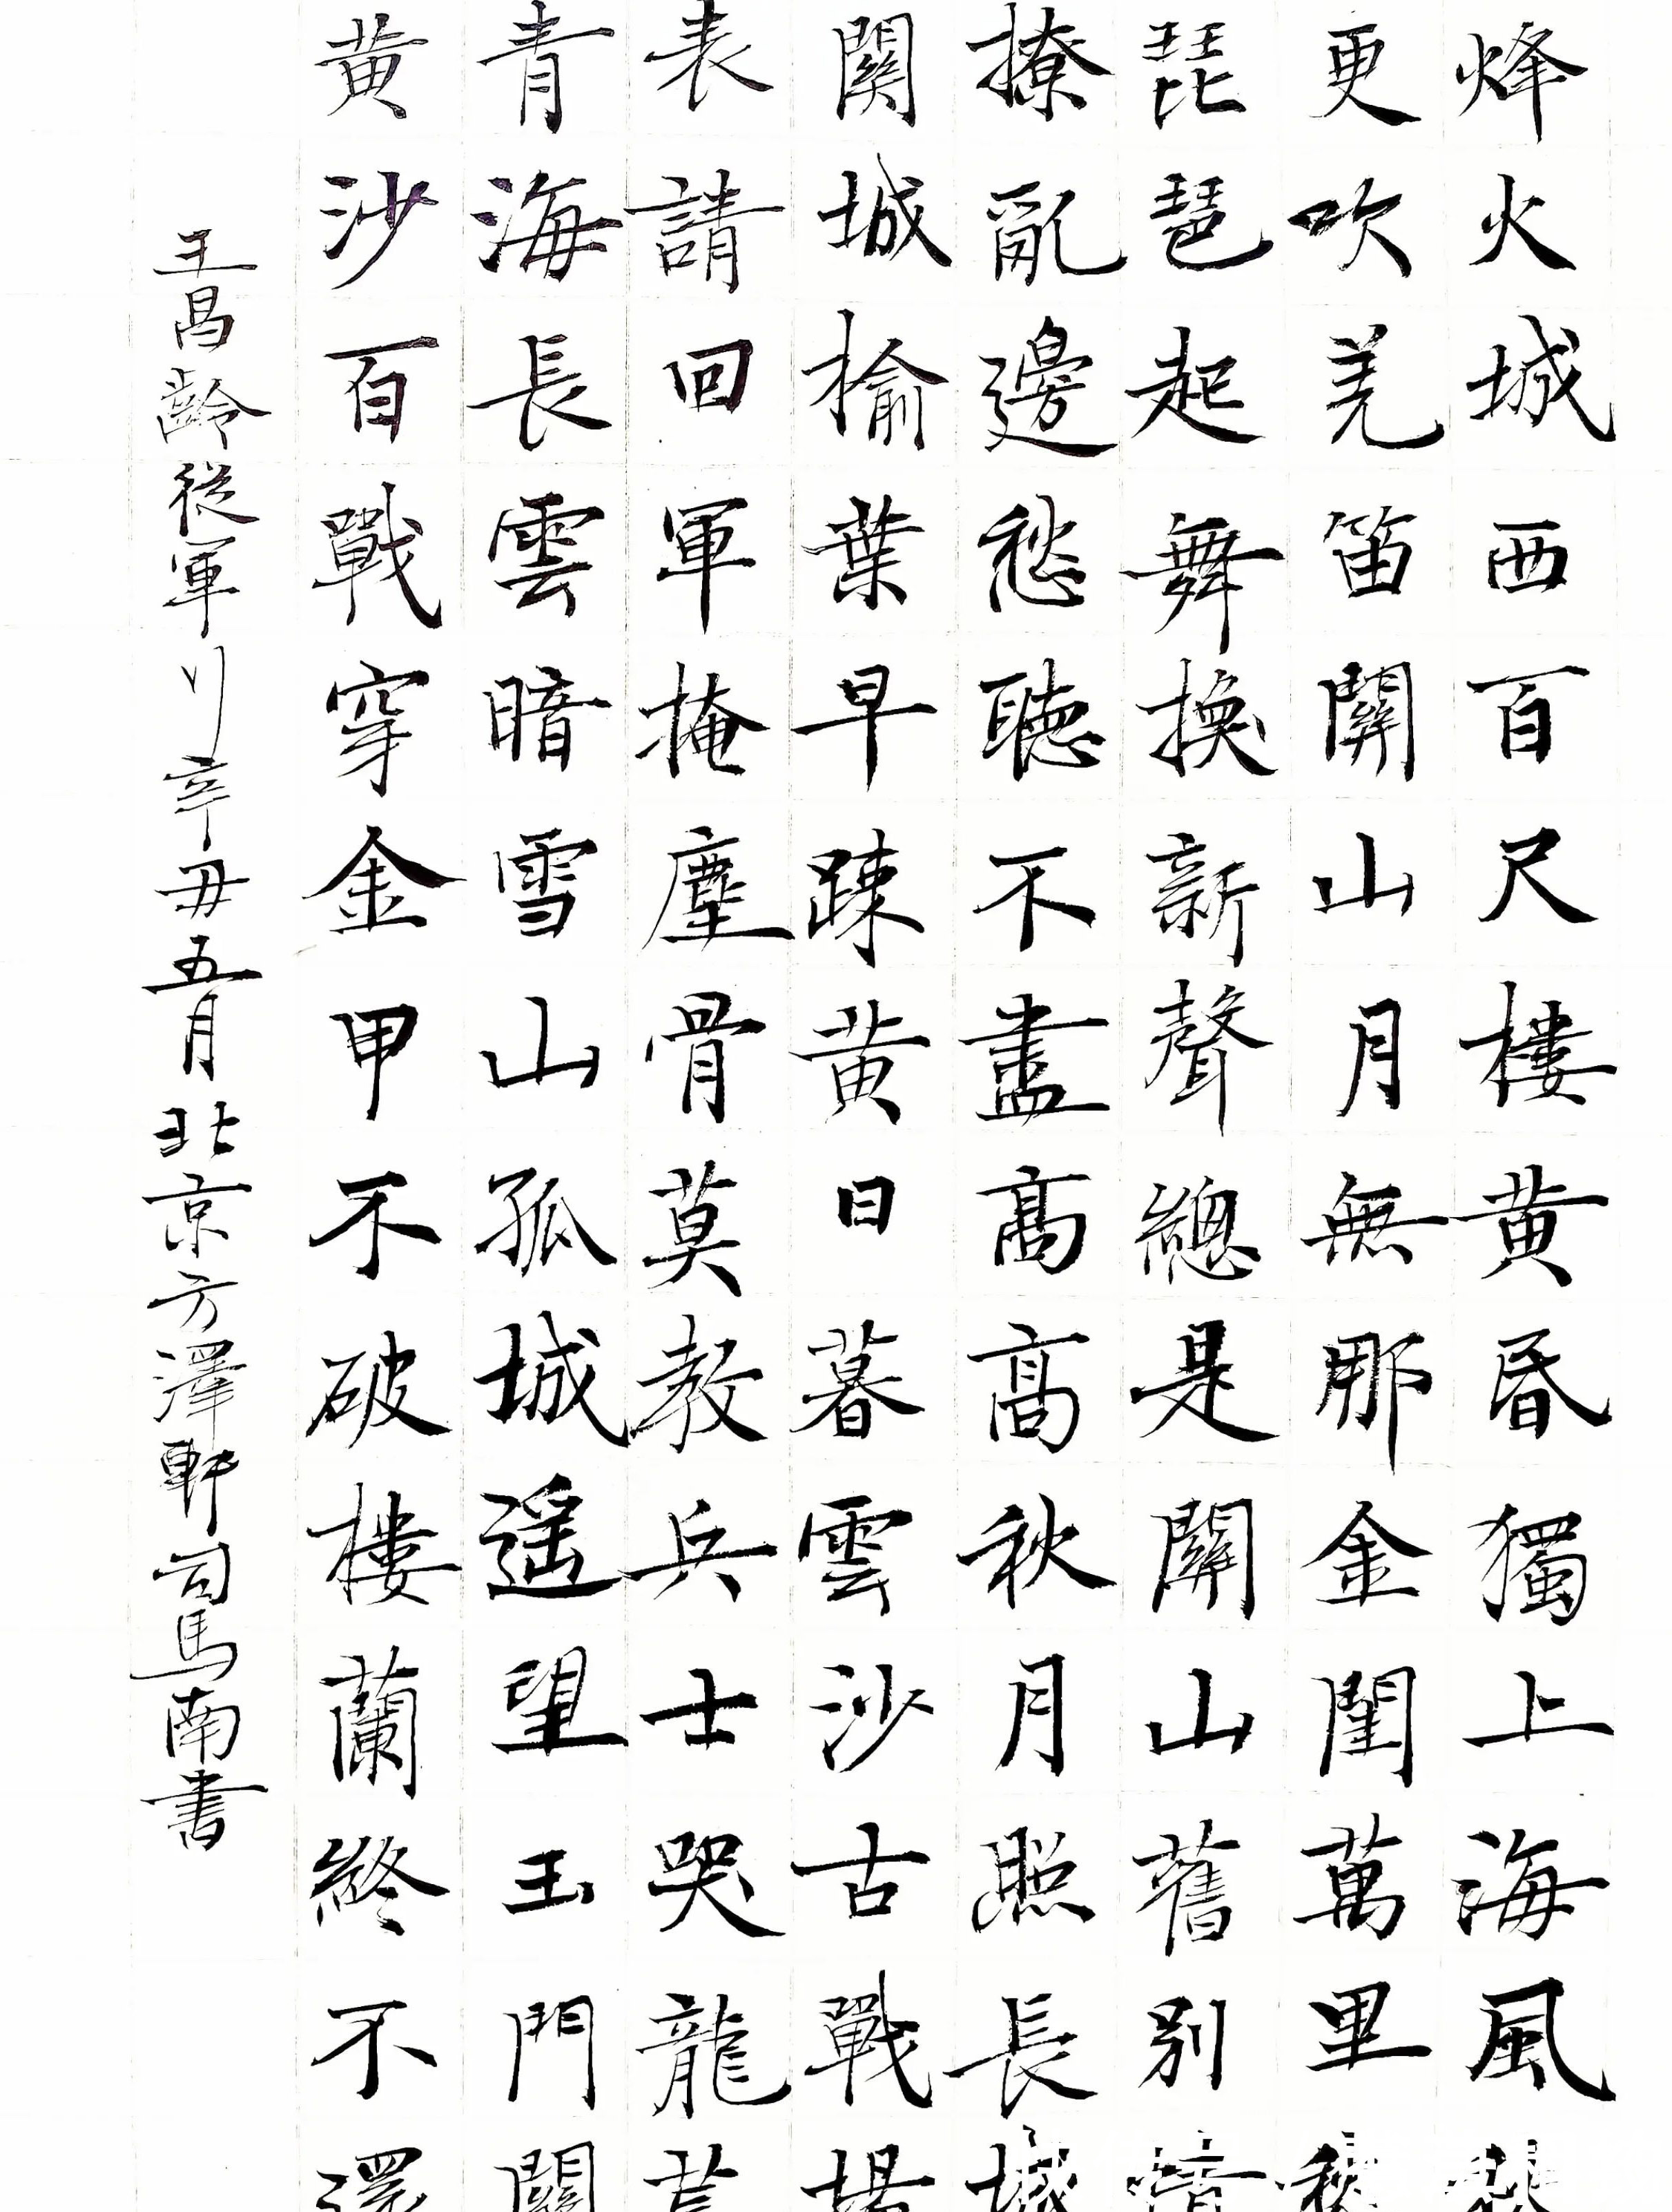 烽火城西百尺樓黄昏獨上海風
更吹羌笛關山月無那金閨萬里
琵琶起舞換新聲總是關山舊别情
撩亂邊愁聽不盡高高秋月照長城
關城榆葉早踈黄日暮雲沙古戰場
表請回軍掩塵骨莫教兵士哭龍荒
青海長雲暗雪山孤城遥望玉門關
黄沙百戰穿金甲不破樓蘭終不還
王昌齡從軍行辛丑五月北京方澤軒司馬南書